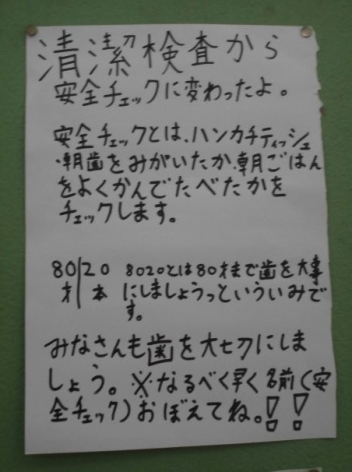 清潔検査から
安全チェックに変わったよ。
安全チェックとは、ハンカチティッシュ
・朝歯をみがいたか、朝ごはん
をよくかんでたべたかを
チェックします。
80|20 8020とは80才まで歯を大事
才|本 にしましょうっといういみで
す。
みなさんも歯を大切にしま
しょう。※なるべく早く名前(安
全チェック)おぼえてね。!!